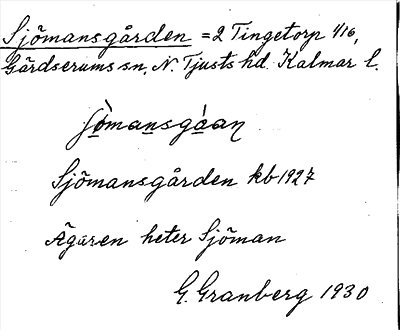 Sjömansgården = 2 Tingetorp 1/16,
Gärdserums sn, N. Tjusts hd. Kalmar l.
Sjömansgården kb 1927
Ägaren heter Sjöman
G. Granberg 1930